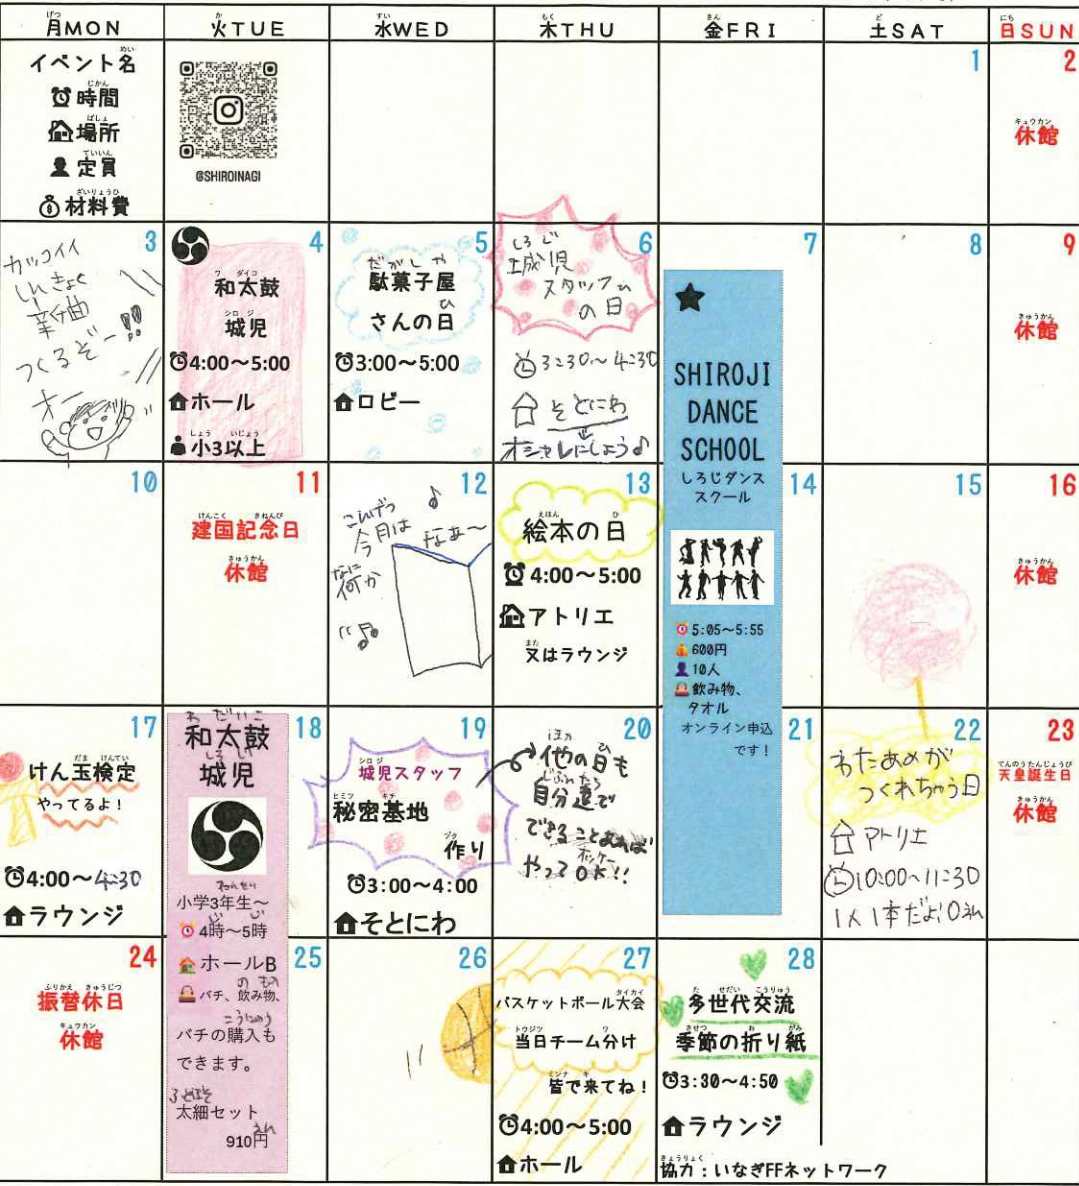 月MON 火TUE 水WED 木THU 金FRI 土SAT 日SUN
イベント名
時間
場所
定員
材料費
@SHIROINAGI
1
2
休館
3
カッコイイ
しんきょく
新曲
つくるぞー!!
オー
4
和太鼓
城児
4:00〜5:00
ホール
小3以上
5
駄菓子屋
さんの日
3:00〜5:00
ロビー
6
城児
スタッフ
の日
3:30〜4:30
そとにわ
オシャレにしよう♪
7
SHIROJI
DANCE
SCHOOL
しろじダンス
スクール
5:05〜5:55
600円
10人
飲み物、
タオル
オンライン申込
です!
8
9
休館
10
11
建国記念日
休館
12
今月は
何か
なぁ〜
13
絵本の日
4:00〜5:00
アトリエ
又はラウンジ
14
15
16
休館
17
けん玉検定
やってるよ!
4:00〜4:30
ラウンジ
18
和太鼓
城児
小学3年生〜
4時〜5時
ホールB
バチ、飲み物、
バチの購入も
できます。
太細セット
910円
19
城児スタッフ
秘密基地
作り
3:00〜4:00
そとにわ
20
他の日も
自分達で
できること
やってOK!!
21
22
わたあめが
つくれちゃう日
アトリエ
10:00〜11:30
1人1本だよ!
23
天皇誕生日
休館
24
振替休日
休館
25
26
27
バスケットボール大会
当日チーム分け
皆で来てね!
4:00〜5:00
ホール
28
多世代交流
季節の折り紙
3:30〜4:50
ラウンジ
協力:いなぎFFネットワーク